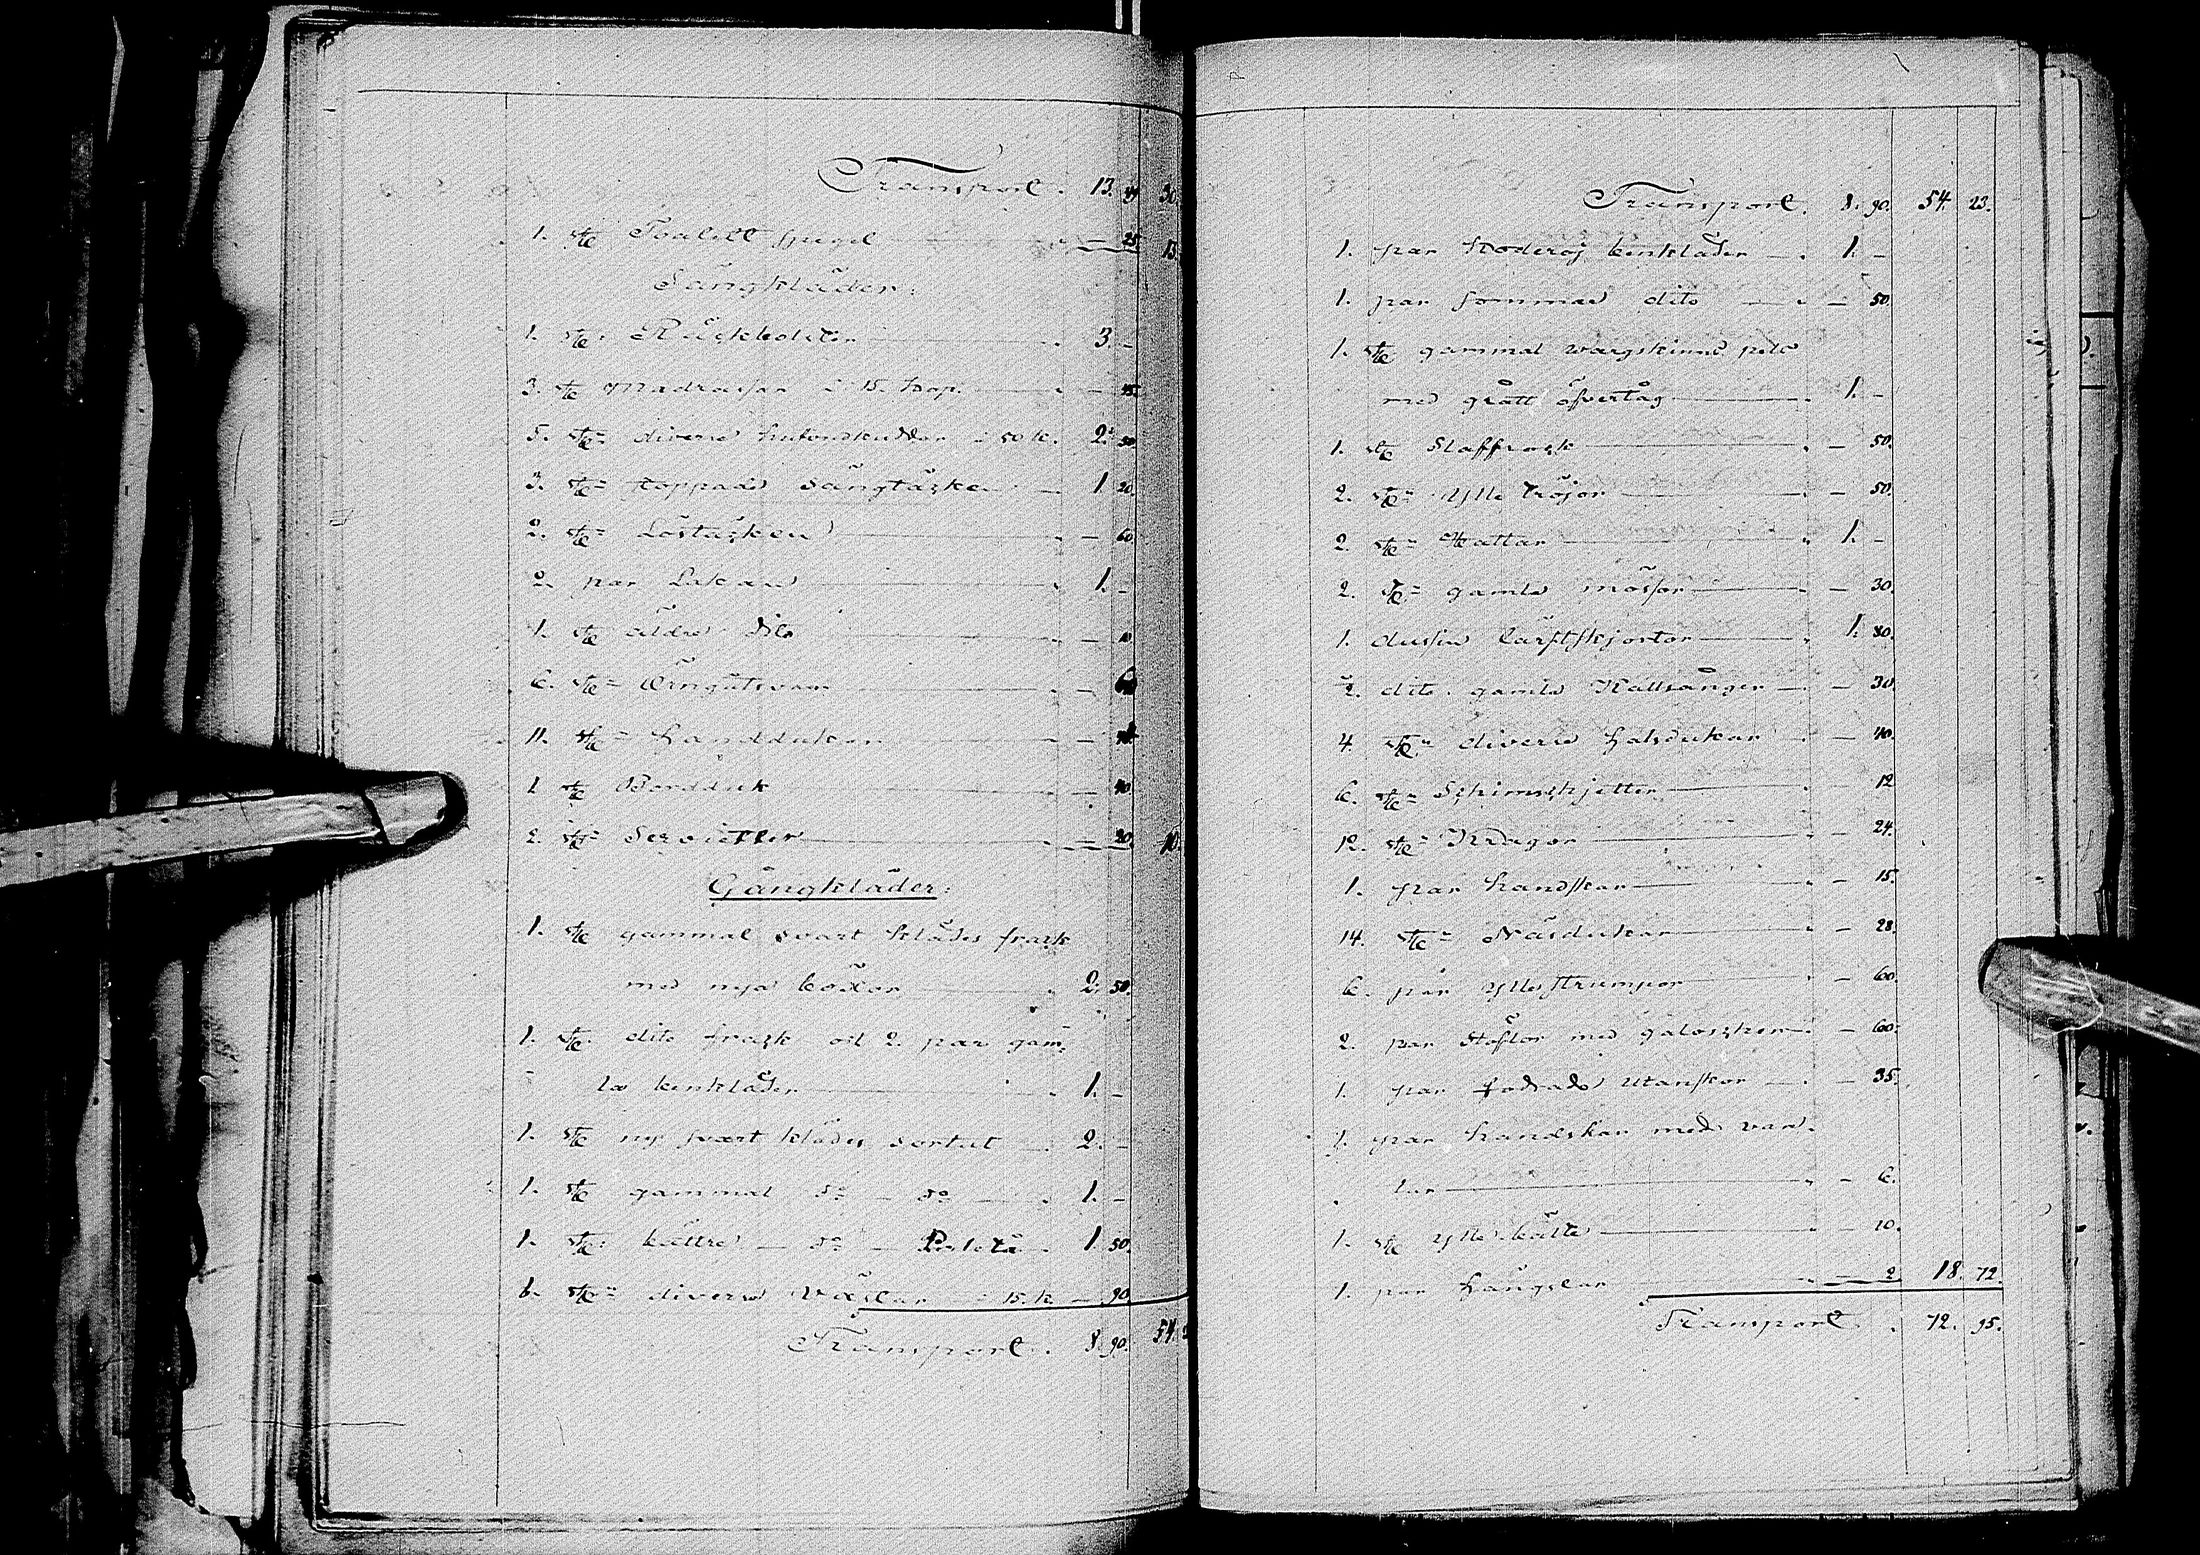 Transport. 13. 30.
1. st. Toalett spegel — 25. 13.
Sängkläder:
1. st. Räckbolster 3. –
3. st. Madrasser à 15 kop. — 45.
5. st. diverse hufvudkuddar à 50 k. 2. 50.
3. st. stoppade sängtäcken 1. 20.
2. st. Löstäcken — 60.
2. par Lakan 1. –
1. st. äldre dito — 10
6. st. Örngåtsvarn — 60
11. st. Handdukar
1 st. Bordduk — 40
2. st. Servietter — 20. 10.
Gångkläder:
1. st. gammal svart klädes frack
med nya böxor 2. 50.
1. st. dito frack och 2. par gam-
la benkläder 1. –
1. st. ny svart klädes sortut 2. –
1. st. gammal do — do 1. –
1. st. bättre — do — Paletå 1. 50.
6. st. diverse Västar à 15. k. — 90
Transport. 8. 90. 54.
Transport. 8. 90. 54. 23.
1. par benkläder 1. –
1. par sommar dito — 50.
1. st. gammal vargskinns pels
med grått öfvertåg 1. –
1. st. Slaffrock — 50.
2. st. Ylle tröjor — 50.
2. st. Hattar 1. –
2. st. gamla mössor — 30.
1. dussin lärftskjortor 1. 80.
½. dito. gamla Kallsånger — 30
4 st. diverse halsdukar — 40.
6. st. Schimschjetter — 12
12. st. Kragor — 24.
1. par handskar — 15.
14. st. Näsdukar — 28.
6. par Yllestrumpor — 60.
2. par Stöflor med galoscher — 60.
1. par fodrade utanskor — 35.
1. par handskar med van-
tar — 6.
1. st. Ylle bälte — 10.
1. par hängslar — 2 18. 72.
Transport. 72. 95.